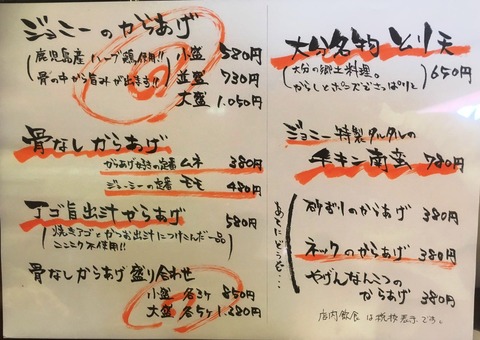 ジョニーのからあげ
(鹿児島産ハーブ鶏使用!!
骨の中から旨みが出ます!!)
小盛 580円
並盛 730円
大盛 1.050円
骨なしからあげ
からあげ好きの定番 ムネ 380円
ジョニーの定番 モモ 480円
アゴ旨出汁からあげ 580円
(焼きアゴとかつお出汁につけこんだ一品
ニンニク不使用!!)
骨なしからあげ盛り合わせ
小盛 各3ヶ 850円
大盛 各5ヶ 1.380円
大分名物 とり天
(大分の郷土料理。
からしとポン酢でさっぱりと) 650円
ジョニー特製タルタルの
チキン南蛮 780円
あてにどうぞ…
砂ずりのからあげ 380円
ネックのからあげ 380円
やげんなんこつの
からあげ 380円
店内飲食は税抜表示です。